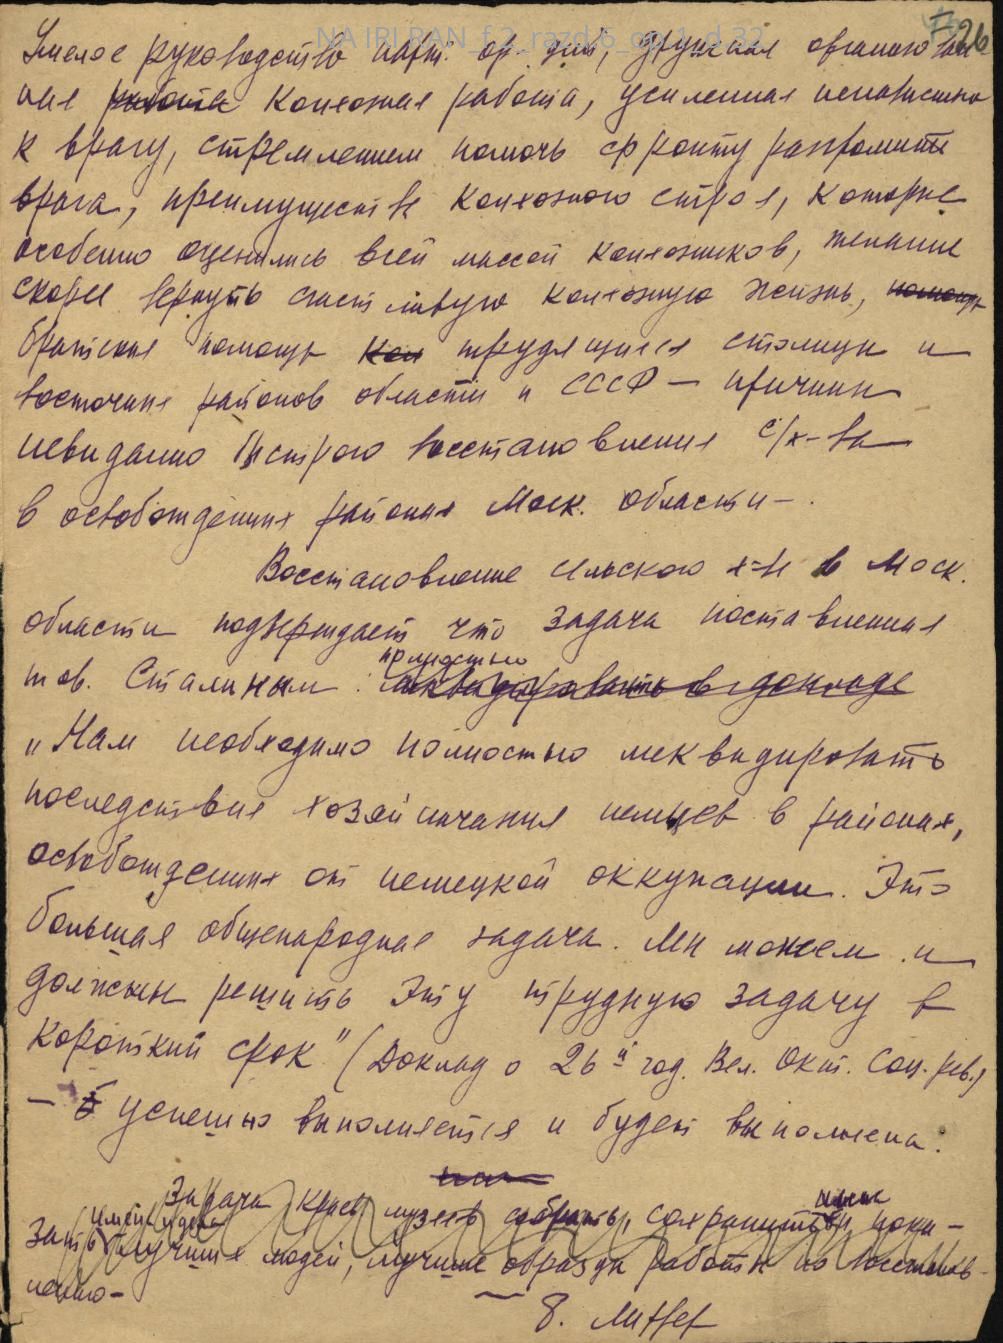 NA IRI RAN_f.2_razd.6_op.1_d.32
26
Умелое руководство парт. организации, дружная организован-
ная работа колхозная работа, усиленная ненавистью
к врагу, стремлением помочь фронту разгромить
врага, преимущества колхозного строя, которые
особенно оценились всей массой колхозников, желание
скорее вернуть счастливую колхозную жизнь, помощь
братская помощь кол трудящихся столицы и
восточных районов области и СССР — причины
невиданно быстрого восстановления с/х-ва
в освобожденных районах Моск. области —.
Восстановление сельского х-ва в Моск.
области подтверждает что задача поставленная
полностью
тов. Сталиным: ликвидировать в докладе
„Нам необходимо полностью ликвидировать
последствия хозяйничания немцев в районах,
освобожденных от немецкой оккупации. Это
большая общенародная задача. Мы можем и
должны решить эту трудную задачу в
короткий срок" (Доклад о 26й год. Вел. Окт. Соц. рев.)
— успешно выполняется и будет выполнена.
Задача краев. музеев собрать, сохранить и пока-
зать лучших людей, лучшие образцы работы по восстанов-
лению —